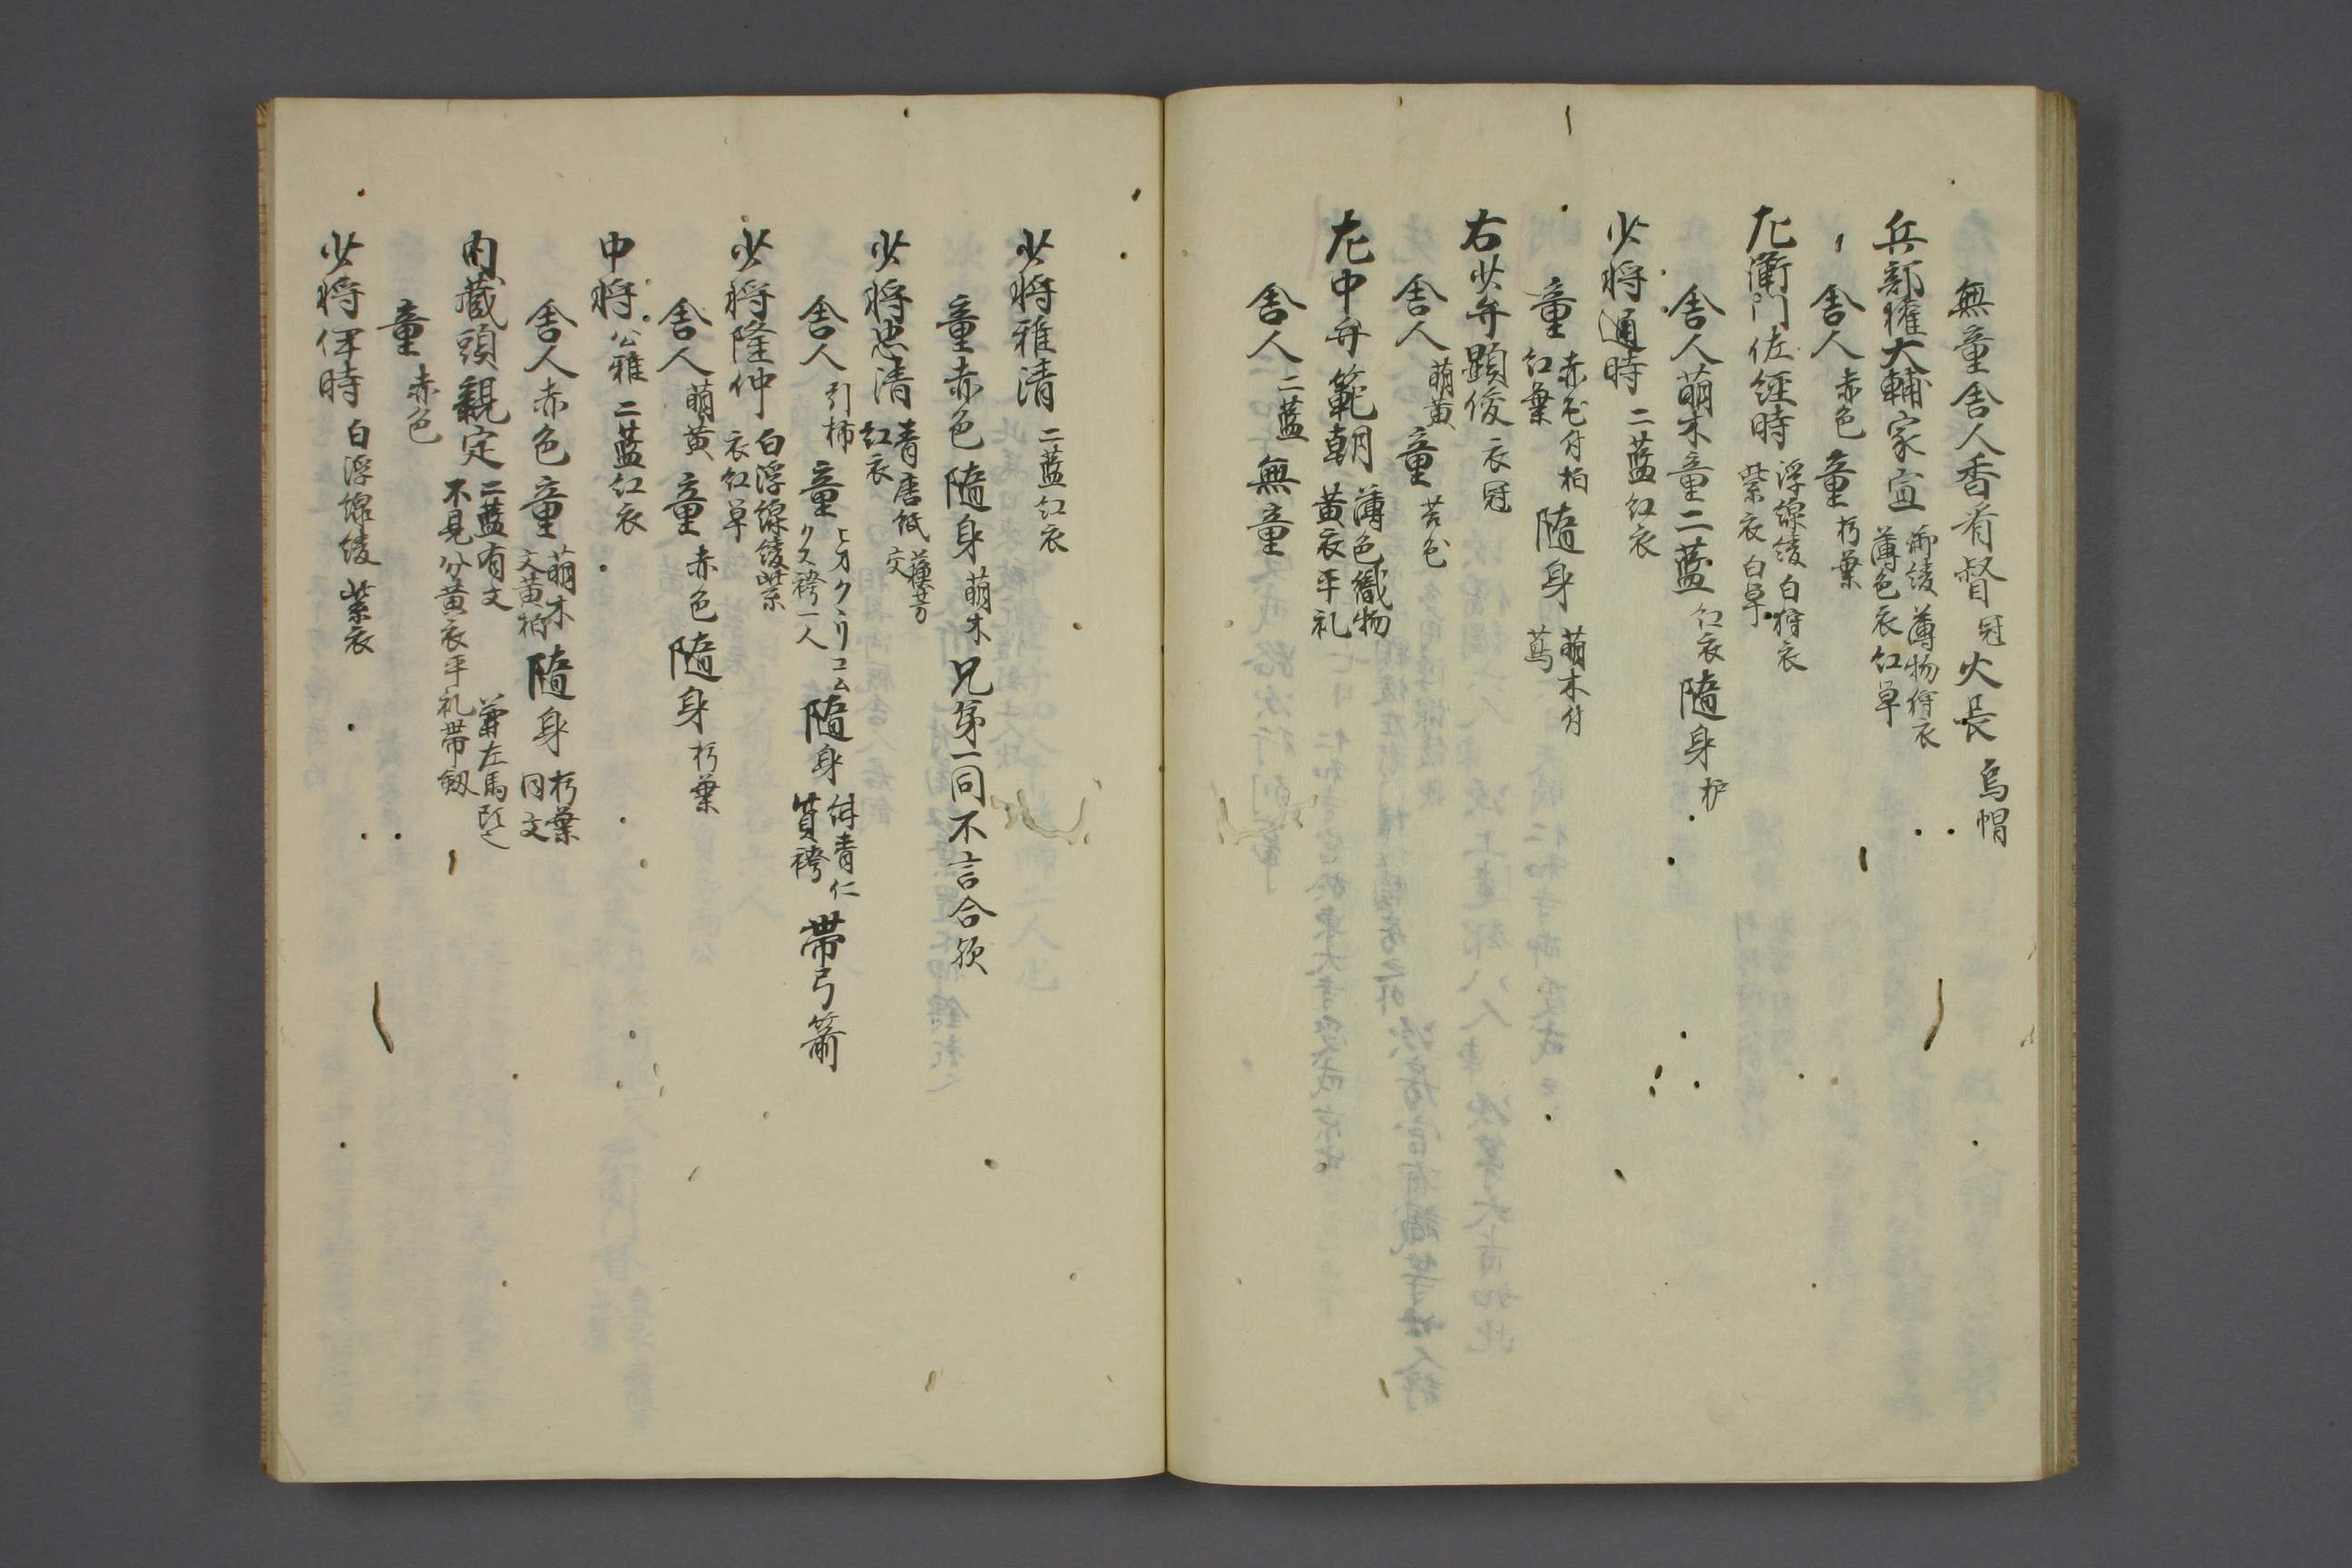 無童舎人香肴督冠火長烏帽
兵部権大輔家宣 薄物狩衣
薄色衣紅単
舎人赤色童朽葉
左衛門佐経時 浮線綾白狩衣
紫衣白単
舎人萌木童二藍紅衣随身
少将通時 二藍紅衣
童 赤色付柏
紅葉 随身 萌木付
右少弁顕俊 衣冠
舎人萌黄童
左中弁範朝 薄色織物
黄衣平礼
舎人二藍無童
少将雅清 二藍紅衣
童赤色随身萌木兄弟一同不言合欤
少将忠清 青唐紙
紅衣
舎人引柿童 リコム
クス袴一人 随身 青仁
袴 帯弓箭
少将隆仲 白浮線綾紫
衣紅単
舎人萌黄童赤色随身朽葉
中将公雅 二藍紅衣
舎人赤色童 萌木
文黄柏 随身 朽葉
同文
内蔵頭観定 二藍有文
不見分黄衣平礼帯剱
童赤色
少将伊時 白浮線綾紫衣